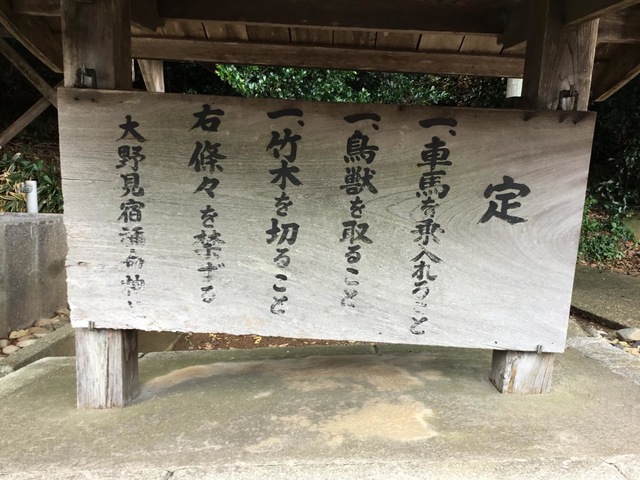 定
一、車馬を乗入れること
一、鳥獣を取ること
一、竹木を切ること
右條々を禁ずる
大野見宿禰命神社